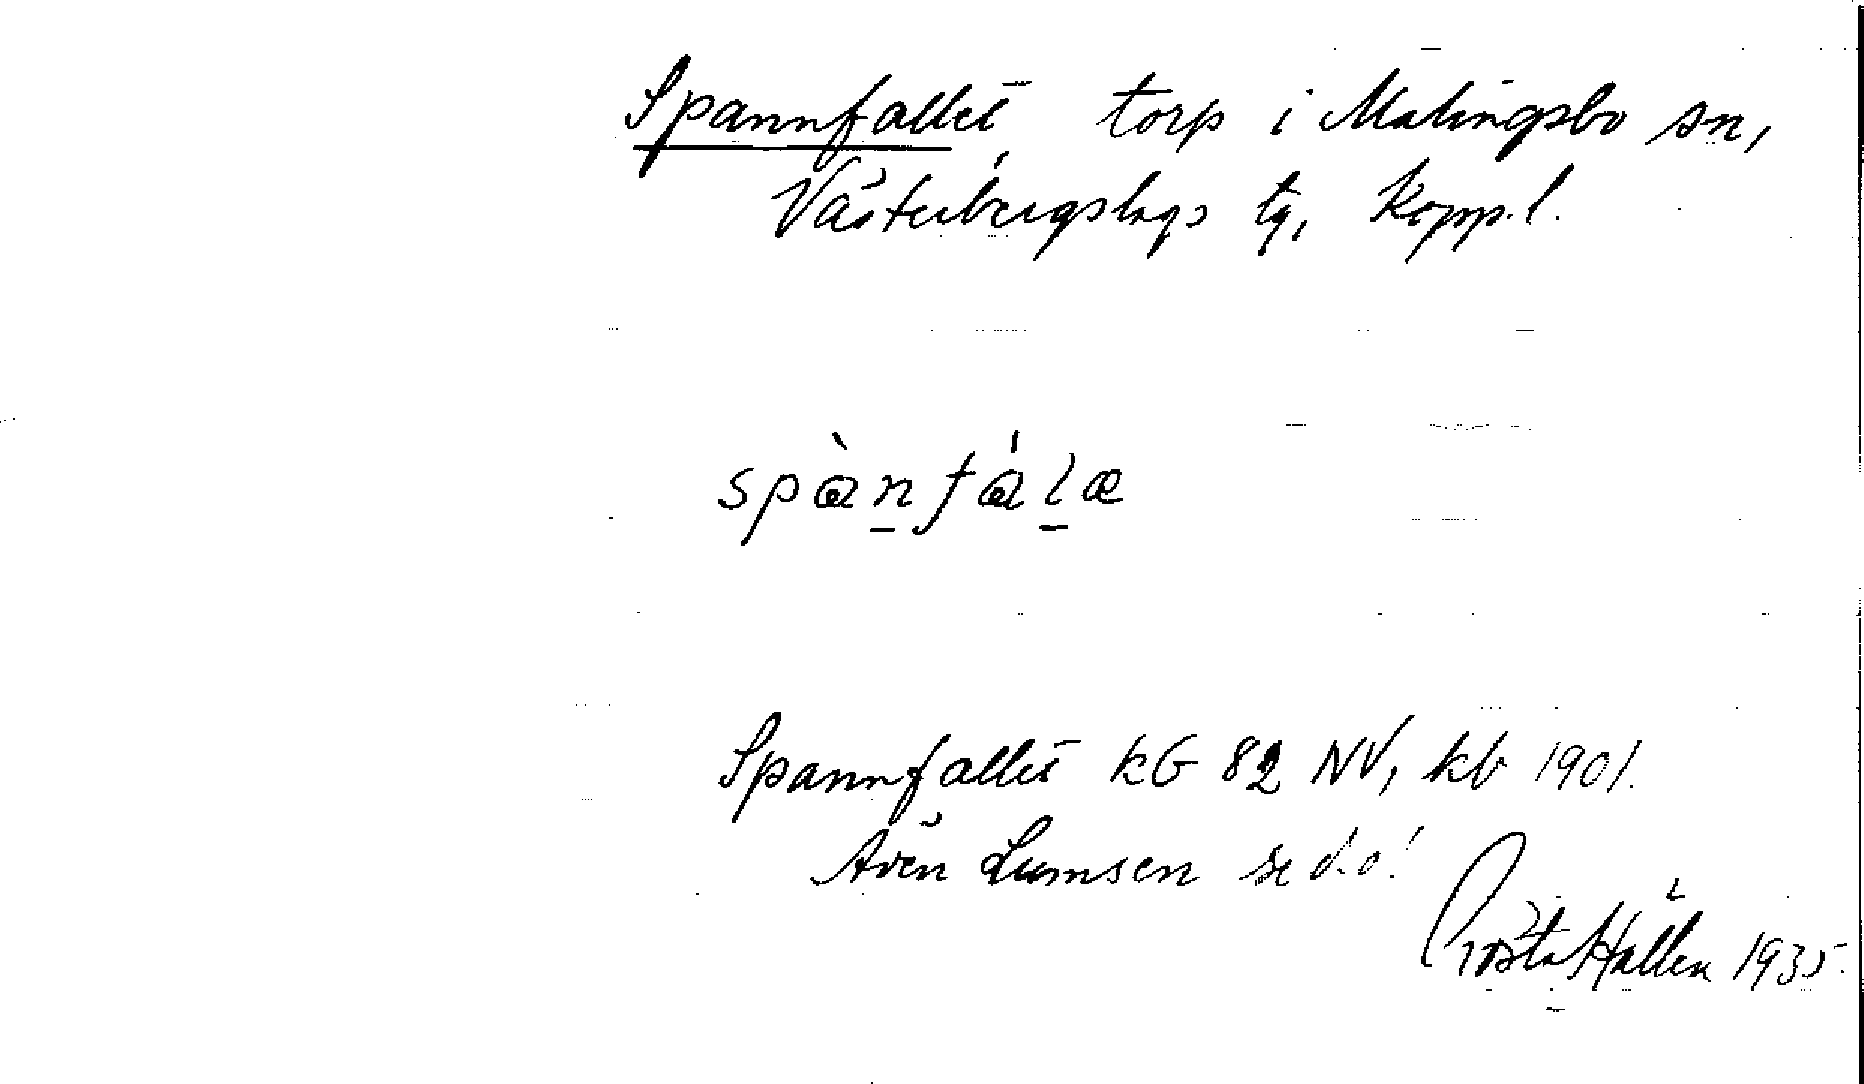 Spannfallet torp i Malingsbo sn,
Västerbergslags tg, Kopp. l.
spànfála
Spannfallet kG 82 NV, kb 1901.
Även Lumsen se d.o!
Gösta Hallén 1935.